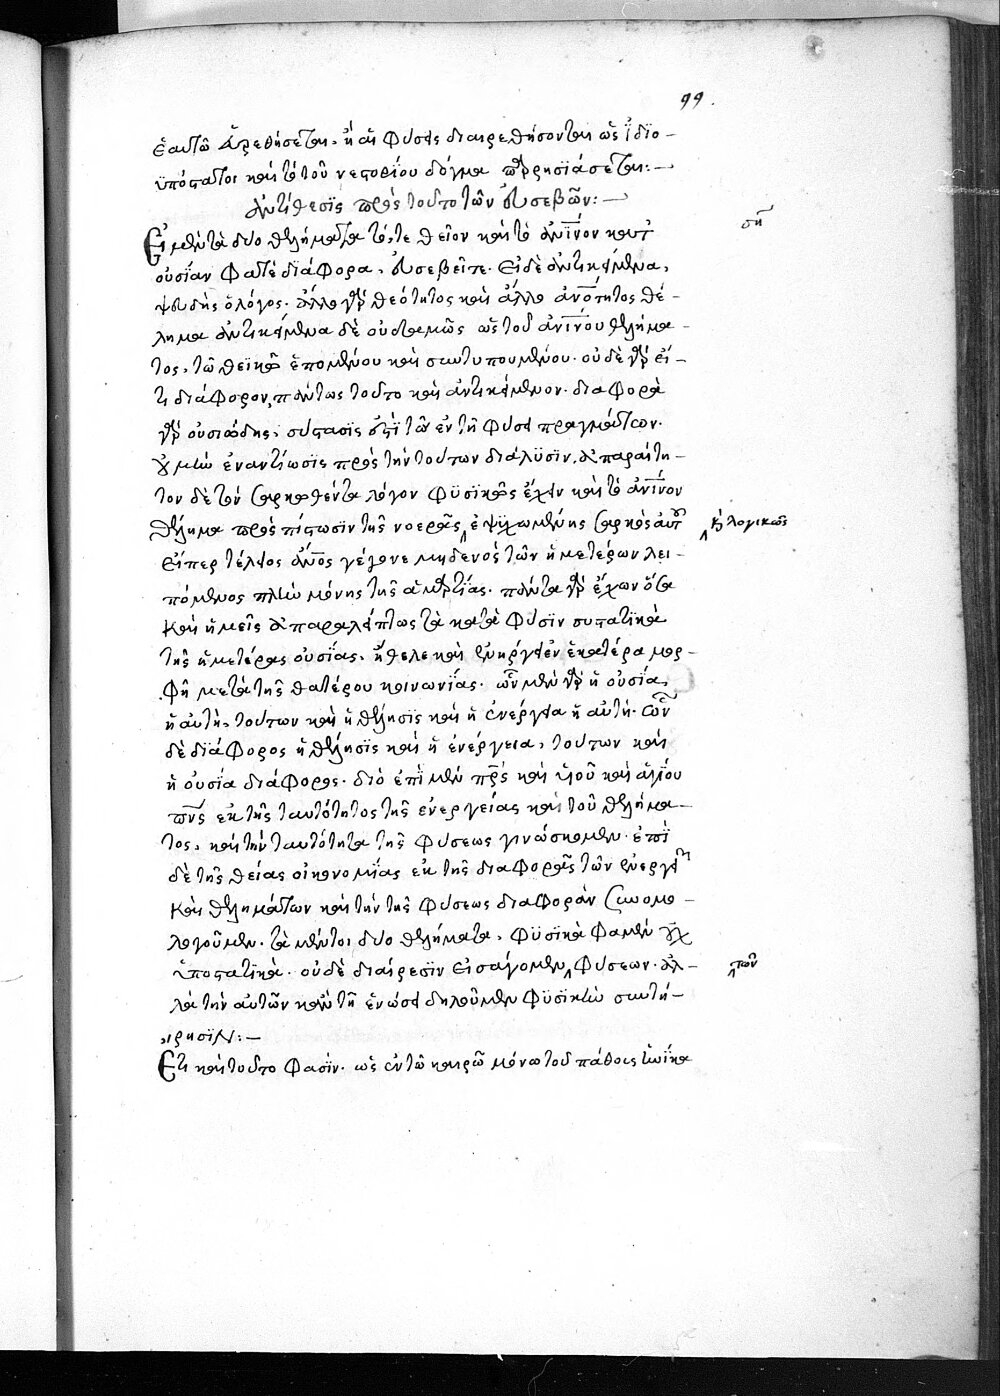 99.
ἑαυτῶ εὑρεθήσεται· ἢ αἱ φύσεις διαιρεθήσονται ὡς ἰδϊο-
ϋπόστατοι καὶ τὸ τοῦ νεστορίου δόγμα παρρησϊάσεται:—
ἀντίθεσϊς πρὸς τοῦτο τῶν εὐσεβῶν:—
Εἰ μὲν τὰ δύο θελήματα τό, τε θεῖον καὶ τὸ ἀνϊνον κατ᾽
σῆ
οὐσίαν φατὲ δϊάφορα, εὐσεβεῖτε. εἰ δὲ ἀντικείμενα,
ψευδὴς ὁ λόγος. ἄλλο γὰρ θεότητος καὶ ἄλλο ἀνότητος θέ-
λημα ἀντικείμενα δὲ οὐδαμῶς ὡς τοῦ ἀνϊνου θελήμα-
τος, τῶ θεϊκῶ ἑπομένου καὶ συντυπουμένου. οὐδὲ γὰρ εἴ-
τι διάφορον, πάντως τοῦτο καὶ ἀντικείμενον. διαφορὰ
γὰρ οὐσιώδης, σύστασϊς ἐστὶ τῶν ἐν τῆ φύσει πραγμάτων.
οὐ μὴν ἐναντίωσϊς πρὸς τὴν τούτων διάλϋσϊν, ἀπαραίτη-
τον δὲ τὸν σαρκωθέντα λόγον φϋσϊκῶς ἔχειν καὶ τὸ ἀνϊνον
θέλημα πρὸς πίστωσϊν τῆς νοερᾶς ἐψϋχωμένης σαρκὸς αὐτοῦ
καὶ λογικῶς
εἴπερ τέλειος ἄνος γέγονε μηδενὸς τῶν ἡμετέρων λει-
πόμενος πλὴν μόνης τῆς ἁμαρτίας. πάντα γὰρ ἔχων ὅσα
καὶ ἡμεῖς ἀπαραλείπτως τὰ κατὰ φύσϊν συστατϊκὰ
τῆς ἡμετέρας οὐσίας, ἤθελε καὶ ἐνήργει ἐν ἑκατέρα μορ-
φῆ μετὰ τῆς θατέρου κοινωνίας. ὧν μὲν γὰρ ἡ οὐσία
ἡ αὐτή, τούτων καὶ ἡ θέλησϊς καὶ ἡ ἐνέργεια ἡ αὐτή. ὧν
δὲ δϊάφορος ἡ θέλησϊς καὶ ἡ ἐνέργεια, τούτων καὶ
ἡ οὐσία διάφορος. διὸ ἐπὶ μὲν πρς καὶ υἱοῦ καὶ ἁγίου
πνς ἐκ τῆς ταυτότητος τῆς ἐνεργείας καὶ τοῦ θελήμα-
τος, καὶ τὴν ταυτότητα τῆς φύσεως γινώσκομεν. ἐπὶ
δὲ τῆς θείας οἰκονομίας ἐκ τῆς διαφορᾶς τῶν ἐνεργειῶν
καὶ θελημάτων καὶ τὴν τῆς φύσεως διαφορὰν συνομο-
λογοῦμεν. τὰ μέντοι δύο θελήματα, φϋσϊκὰ φαμὲν οὐχ
ὑποστατϊκὰ. οὐδὲ διαίρεσϊν εἰσάγομεν φύσεων. ἀλ-
τῶν
λὰ τὴν αὐτῶν κἀν τῆ ἑνώσει δηλοῦμεν φϋσϊκὴν συντή-
ρησϊν:—
Ἔτι καὶ τοῦτο φασϊν. ὡς ἐν τῶ καιρῶ μόνω τοῦ πάθους ἡνίκα